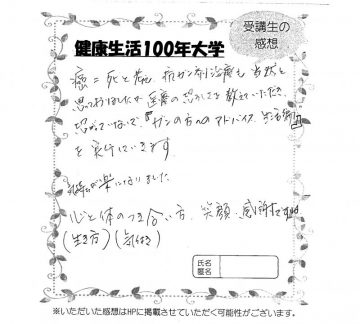 受講生の
感想
健康生活100年大学
癌=死と 抗ガン剤治療も 当然と
思っておりましたが 医療の恐ろしさを教えていただき
『ガンの方へのアドバイス 生活術』
を実行していきます。
気持が楽になりました
心と体のつき合い方、笑顔・感謝ですね
(生き方)(気付き)
氏名
匿名
※いただいた感想はHPに掲載させていただく可能性がございます。